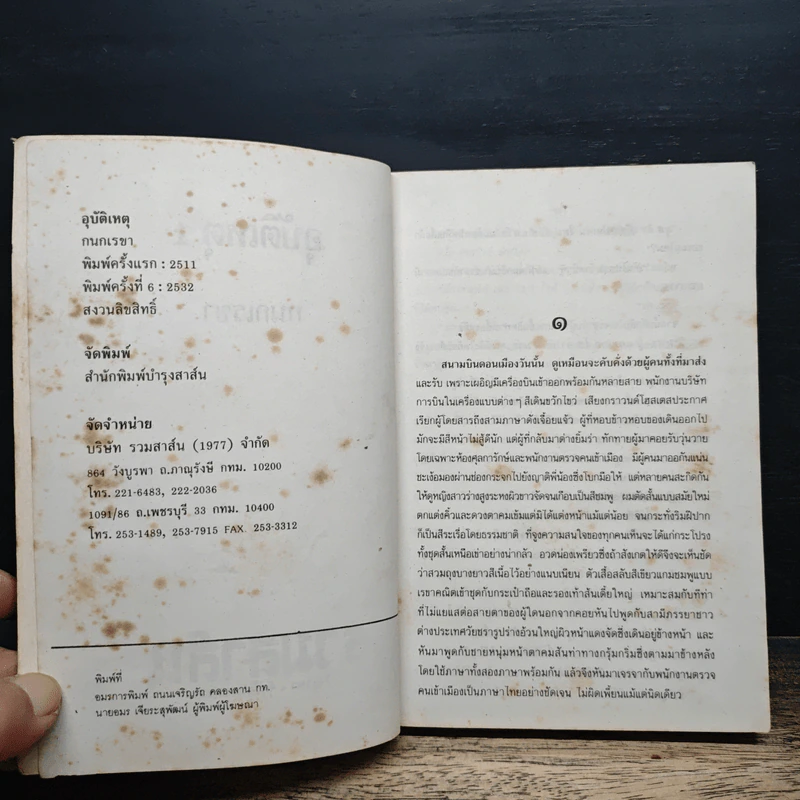 อุบัติเหตุ
กนกเรขา
พิมพ์ครั้งแรก : 2511
พิมพ์ครั้งที่ 6 : 2532
สงวนลิขสิทธิ์
จัดพิมพ์
สำนักพิมพ์บำรุงสาส์น
จัดจำหน่าย
บริษัท รวมสาส์น (1977) จำกัด
864 วังบูรพา ถ.ภาณุรังษี กทม. 10200
โทร. 221-6483, 222-2036
1091/86 ถ.เพชรบุรี 33 กทม. 10400
โทร. 253-1489, 253-7915 FAX. 253-3312
พิมพ์ที่
อมรการพิมพ์ ถนนเจริญรัถ คลองสาน กท.
นายอมร เจียระสุพัฒน์ ผู้พิมพ์ผู้โฆษณา
๑
สนามบินดอนเมืองวันนั้น ดูเหมือนจะคับคั่งด้วยผู้คนทั้งที่มาส่ง
และรับ เพราะเผอิญมีเครื่องบินเข้าออกพร้อมกันหลายสาย พนักงานบริษัท
การบินในเครื่องแบบต่าง ๆ สีเดินขวักไขว่ เสียงกราวนด์โฮสเตสประกาศ
เรียกผู้โดยสารถึงสามภาษาดังเจื้อยแจ้ว ผู้ที่หอบข้าวหอบของเดินออกไป
มักจะมีสีหน้าไม่สู้ดีนัก แต่ผู้ที่กลับมาต่างยิ้มร่า ทักทายผู้มาคอยรับวุ่นวาย
โดยเฉพาะห้องศุลการักษ์และพนักงานตรวจคนเข้าเมือง มีผู้คนมาออกันแน่น
ชะเง้อมองผ่านช่องกระจกไปยังญาติพี่น้องซึ่งโบกมือให้ แต่หลายคนสะกิดกัน
ให้ดูหญิงสาวร่างสูงระหงผิวขาวจัดจนเกือบเป็นสีชมพู ผมตัดสั้นแบบสมัยใหม่
ตกแต่งคิ้วและดวงตาคมเข้มแต่มิได้แต่งหน้าแม้แต่น้อย จนกระทั่งริมฝีปาก
ก็เป็นสีระเรื่อโดยธรรมชาติ ที่จูงความสนใจของทุกคนเห็นจะได้แก่กระโปรง
ทั้งชุดสั้นเหนือเข่าอย่างน่ากลัว อวดน่องเพรียวซึ่งถ้าสังเกตให้ดีจึงจะเห็นชัด
ว่าสวมถุงบางยาวสีเนื้อไว้อย่างแนบเนียน ตัวเสื้อสลับสีเขียวแกมชมพูแบบ
เรขาคณิตเข้าชุดกับกระเป๋าถือและรองเท้าส้นเตี้ยใหญ่ เหมาะสมกับทีท่า
ที่ไม่แยแสต่อสายตาของผู้ใดนอกจากคอยหันไปพูดกับสามีภรรยาชาว
ต่างประเทศวัยชรารูปร่างอ้วนใหญ่ผิวหน้าแดงจัดซึ่งเดินอยู่ข้างหน้า และ
หันมาพูดกับชายหนุ่มหน้าตาคมสันท่าทางกรุ้มกริ่มซึ่งตามมาข้างหลัง
โดยใช้ภาษาทั้งสองภาษาพร้อมกัน แล้วจึงหันมาเจรจากับพนักงานตรวจ
คนเข้าเมืองเป็นภาษาไทยอย่างชัดเจน ไม่ผิดเพี้ยนแม้แต่นิดเดียว